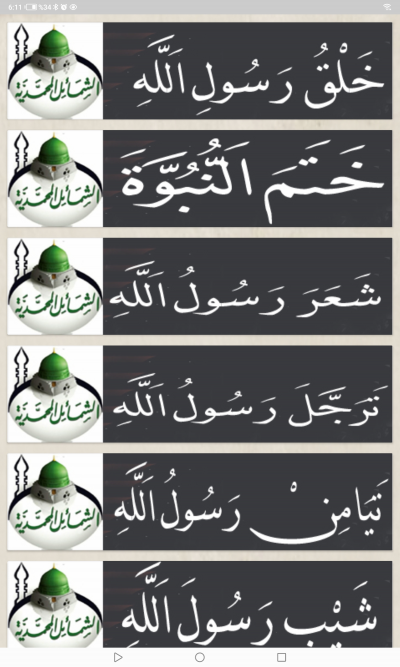 6:11 %34
الشمائل المحمدية
خَلْقُ رَسُولِ اَللَّهِ
الشمائل المحمدية
خَتَمَ اَلنُّبُوَّةَ
الشمائل المحمدية
شَعَرَ رَسُولُ اَللَّهِ
الشمائل المحمدية
تَرَجَّلَ رَسُولُ اَللَّهِ
الشمائل المحمدية
تَيَامِنْ رَسُولُ اَللَّهِ
الشمائل المحمدية
شَيْبِ رَسُولَ اَللَّهِ